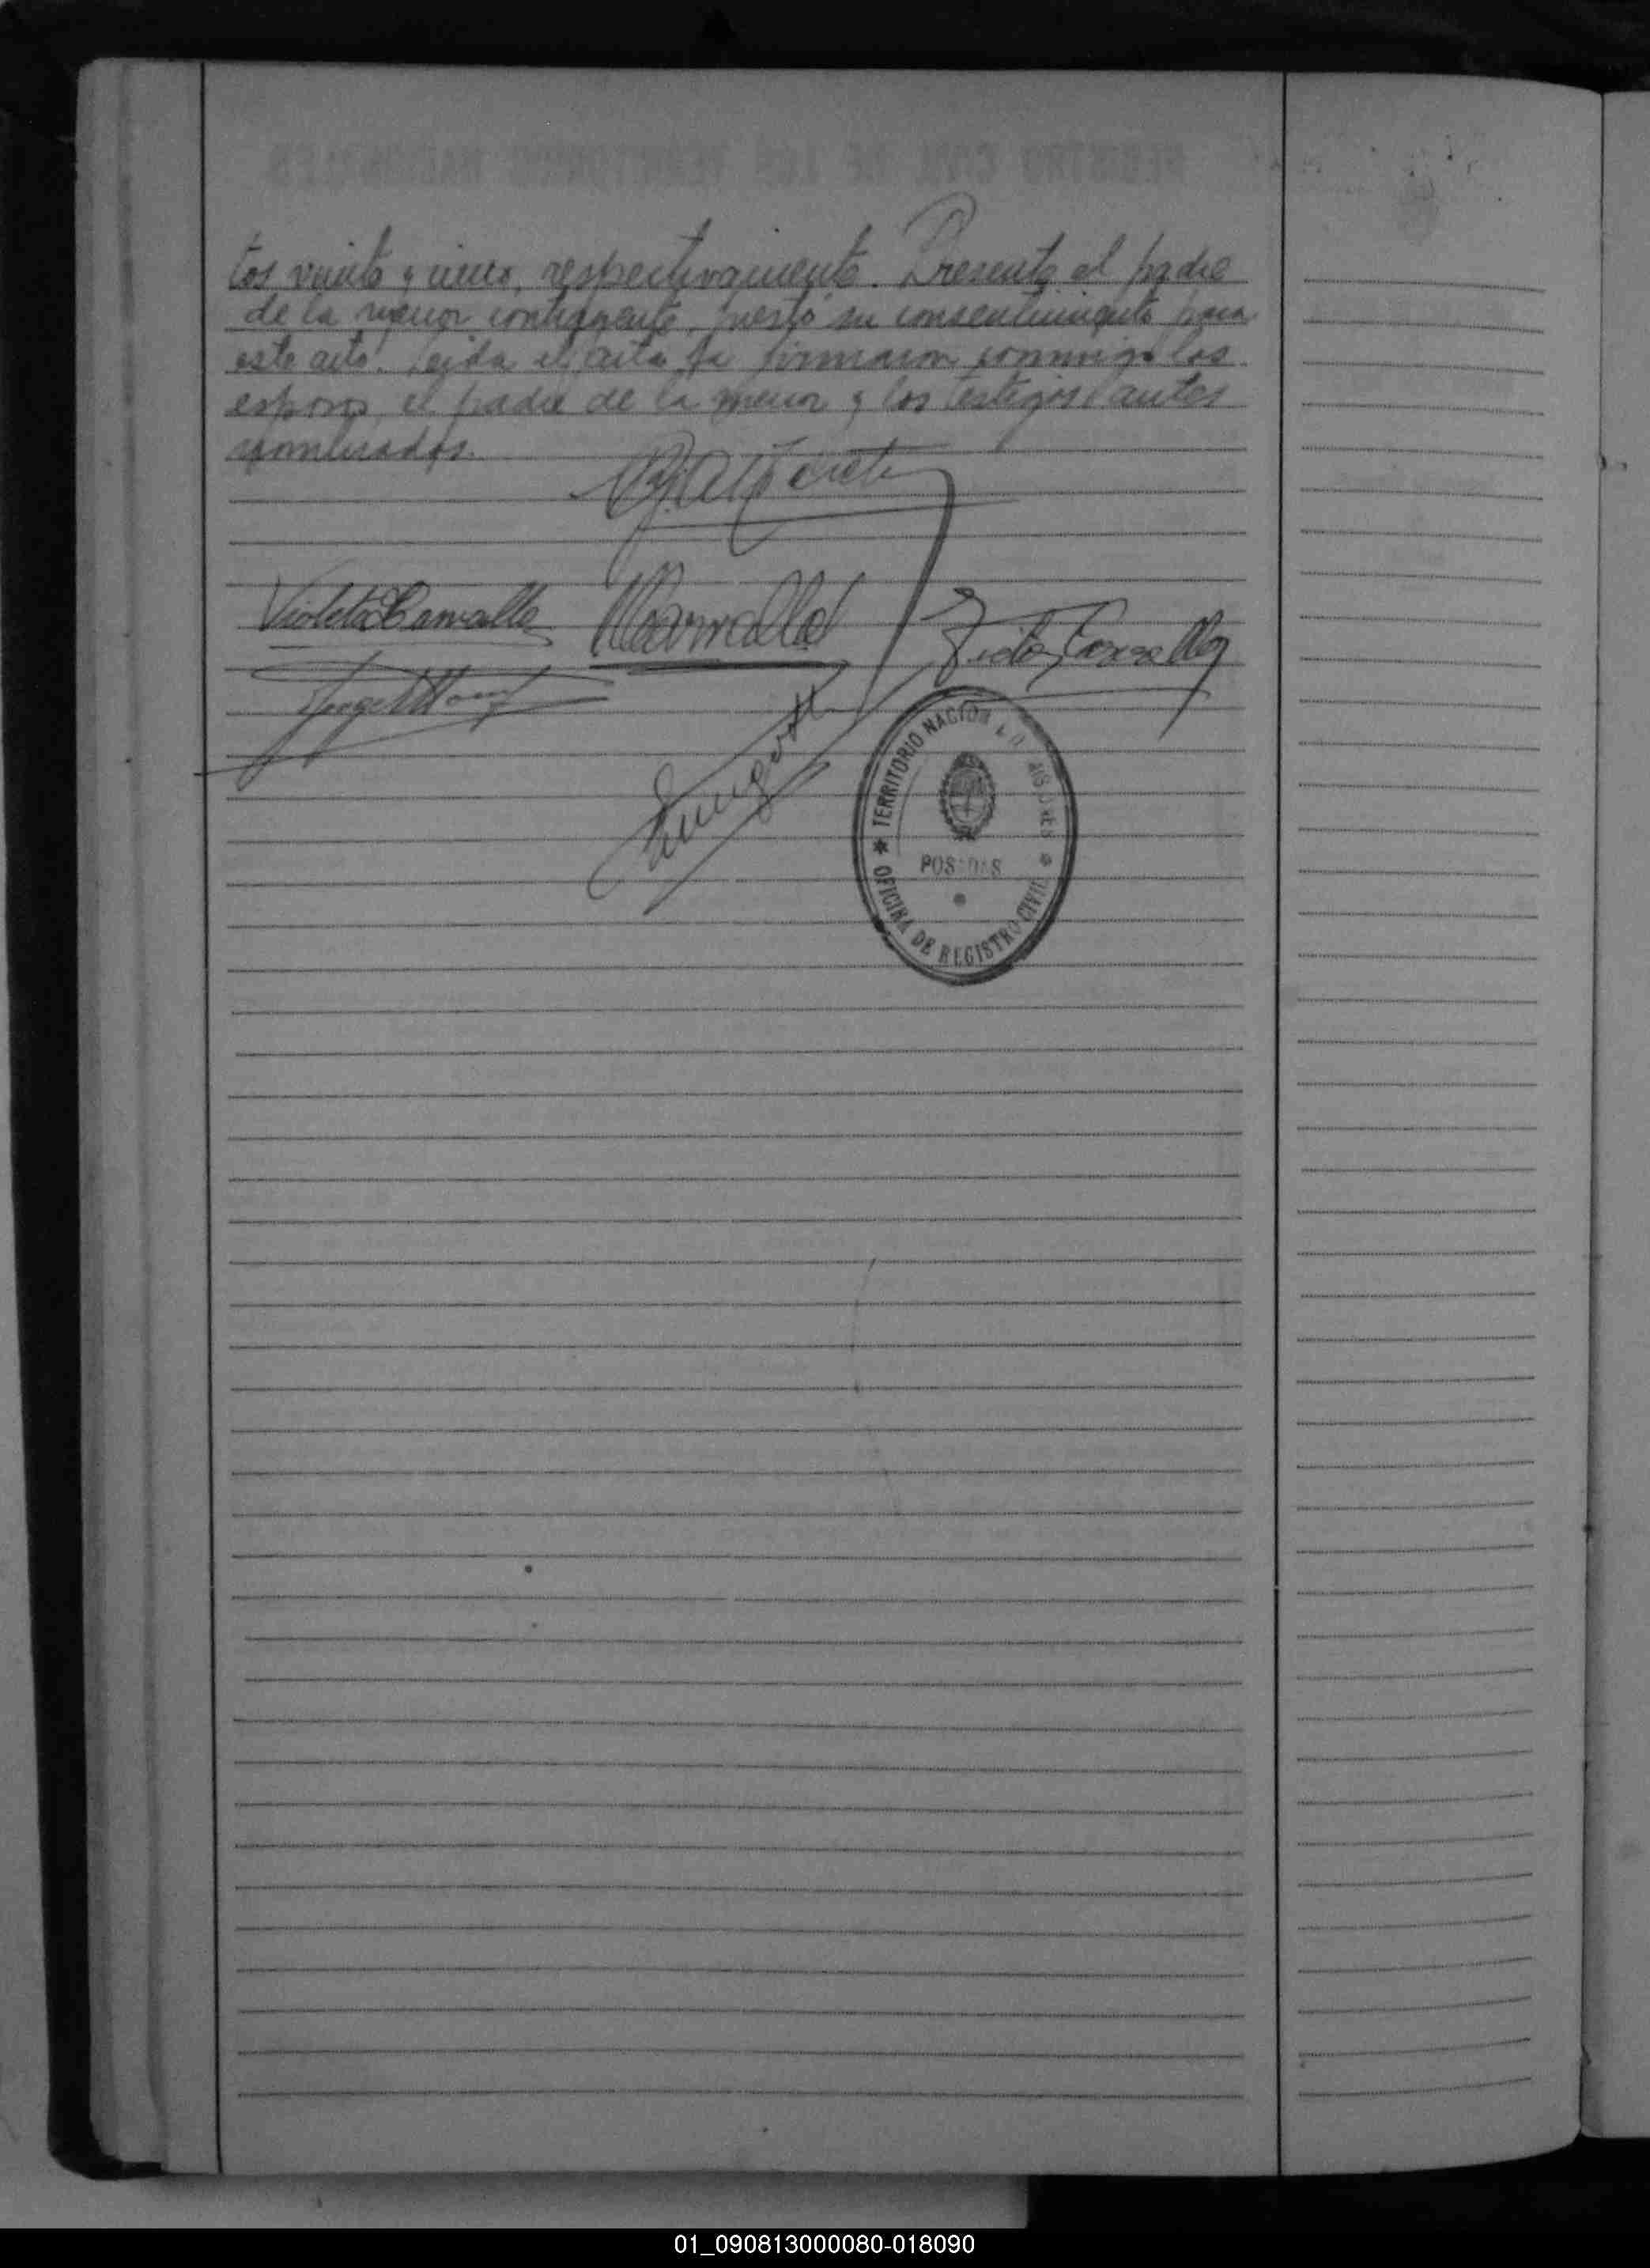 tos veinte y cinco, respectivamente. Presente el padre
de la menor contrayente, prestó su consentimiento para
este acto. Leida el acta la firmaron conmigo los
esposos, el padre de la menor y los testigos antes
nombrados.
Violeta Carvallo
Carvallo
Carvallo
Jorge
TERRITORIO NACIONAL DE MISIONES
POSADAS
OFICINA DE REGISTRO CIVIL
01_090813000080-018090